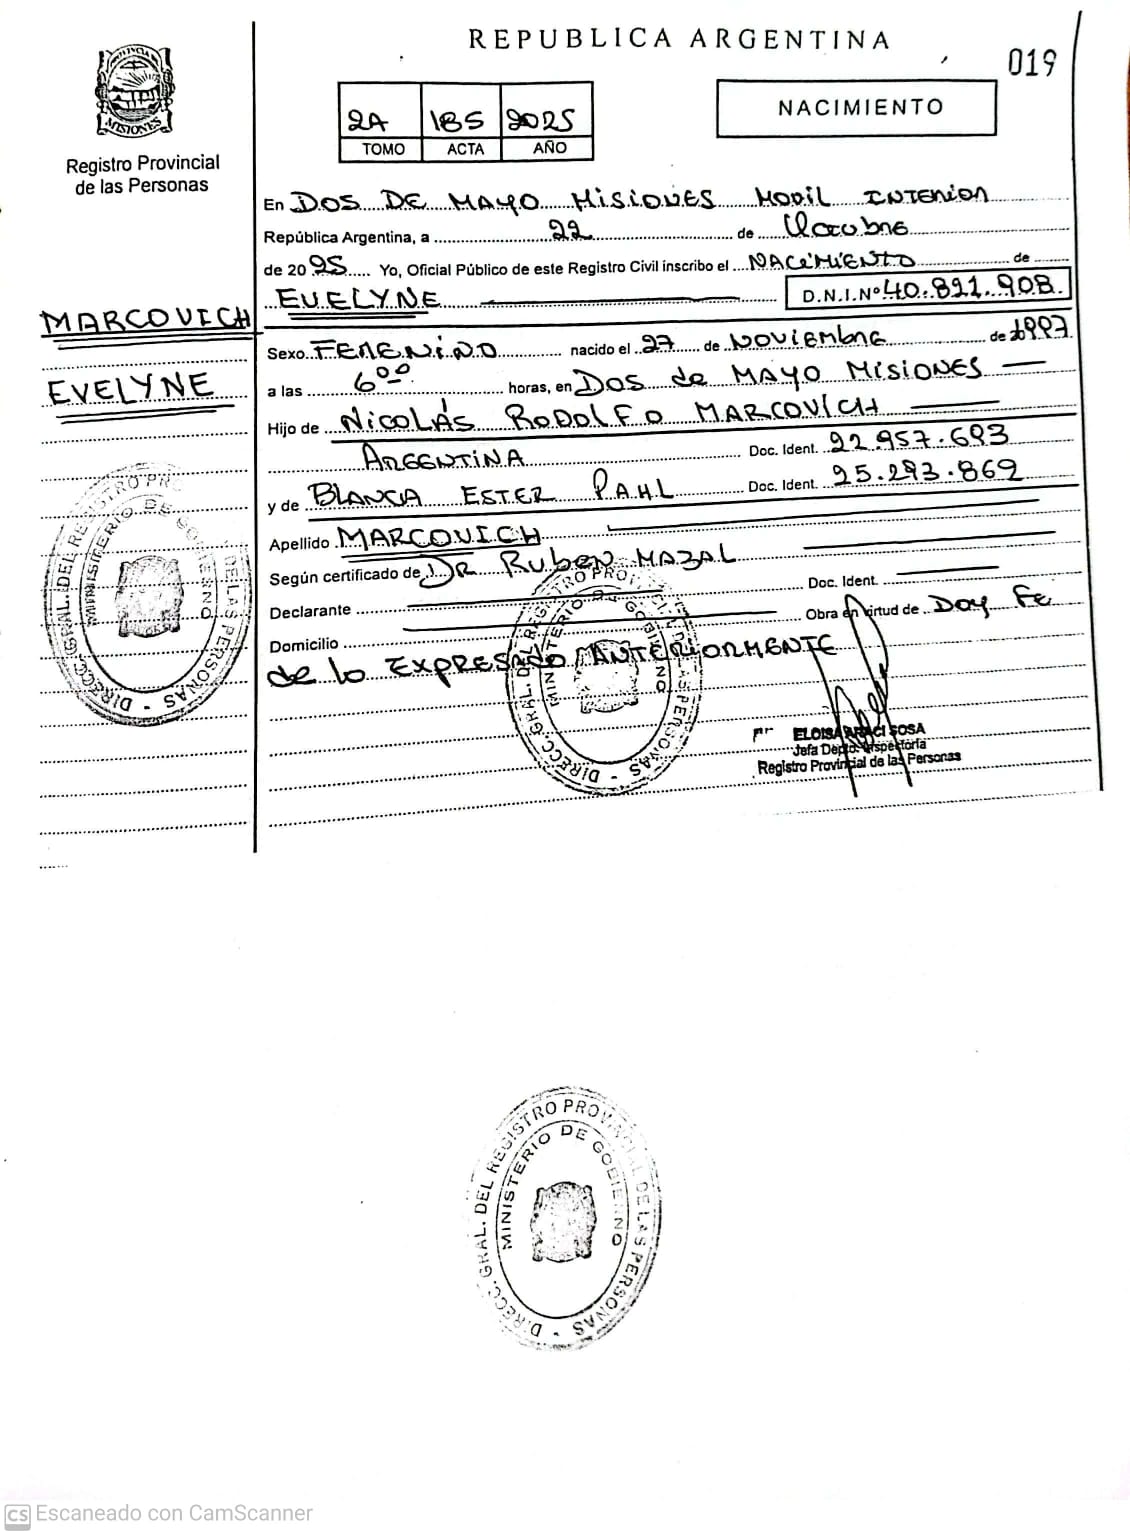 REPUBLICA ARGENTINA
019
PROVINCIA DE MISIONES
Registro Provincial
de las Personas
2A 185 2025
TOMO ACTA AÑO
NACIMIENTO
En DOS DE MAYO MISIONES MOVIL INTERIOR
República Argentina, a 22 de Octubre
de 2025 Yo, Oficial Público de este Registro Civil inscribo el NACIMIENTO de
EVELYNE D.N.I.Nº 40.821.908.
MARCOVICH
EVELYNE
Sexo FEMENINO nacido el 27 de NOVIEMBRE de 1997
a las 6⁰⁰ horas, en DOS de MAYO MISIONES
Hijo de Nicolás RODOLFO MARCOVICH
ARGENTINA Doc. Ident. 22.957.693
y de BLANCA ESTER PAHL Doc. Ident. 25.293.869
Apellido MARCOVICH
Según certificado de DR Ruben MAZAL
Declarante Doc. Ident.
Domicilio Obra en virtud de Doy Fe
de lo EXPRESADO ANTERIORMENTE
DIRECC. GRAL. DEL REGISTRO PROVINCIAL DE LAS PERSONAS -
MINISTERIO DE GOBIERNO
DIRECC. GRAL. DEL REGISTRO PROVINCIAL DE LAS PERSONAS -
MINISTERIO DE GOBIERNO
ELOISA ARACI SOSA
Jefa Depto. Inspectoría
Registro Provincial de las Personas
DIRECC. GRAL. DEL REGISTRO PROVINCIAL DE LAS PERSONAS -
MINISTERIO DE GOBIERNO
CS Escaneado con CamScanner